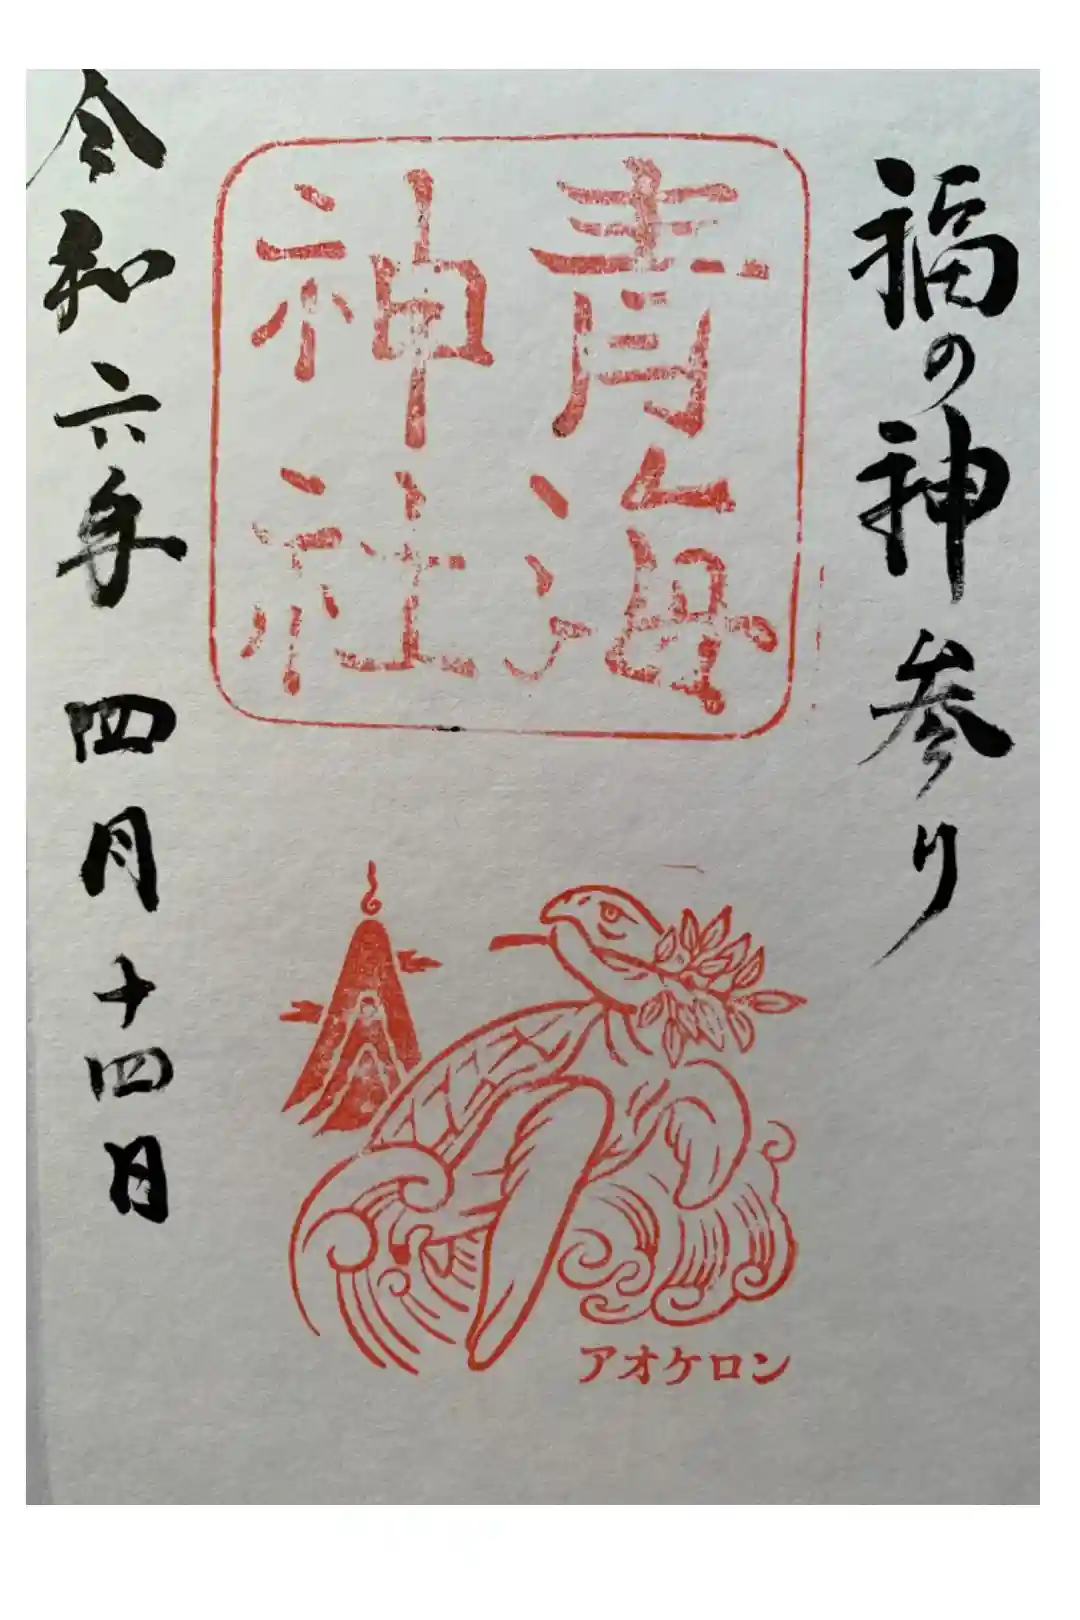 福の神参り
青海
神社
令和六年 四月十四日
アオケロン